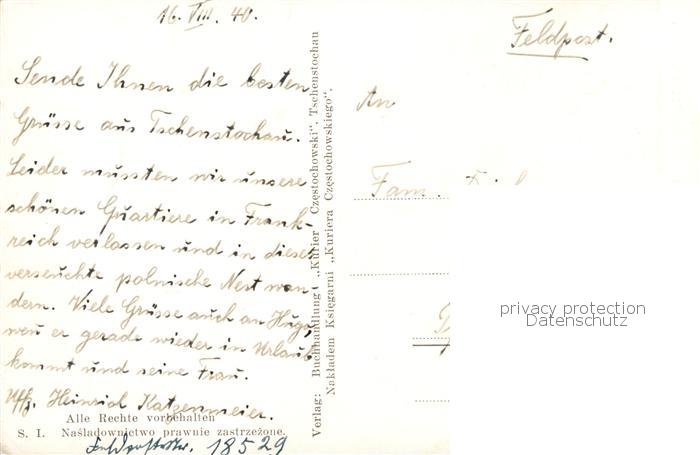 16. VIII. 40.
Sende Ihnen die besten
Grüsse aus Tschenstochau.
Leider mussten wir unsere
schönen Quartiere in Frank-
reich verlassen und in dieses
verseuchte polnische Nest wan-
dern. Viele Grüsse auch an Hugo,
wen er gerade wieder in Urlaub
kommt und seine Frau.
Uffz. Heinrich Katzenmeier.
Alle Rechte vorbehalten
S. I. Naśladownictwo prawnie zastrzeżone.
Feldpostnr. 18529
Verlag: Buchhandlung „Kurier Częstochowski", Tschenstochau
Nakładem Księgarni „Kuriera Częstochowskiego".
Feldpost.
An
Fam.
privacy protection
Datenschutz